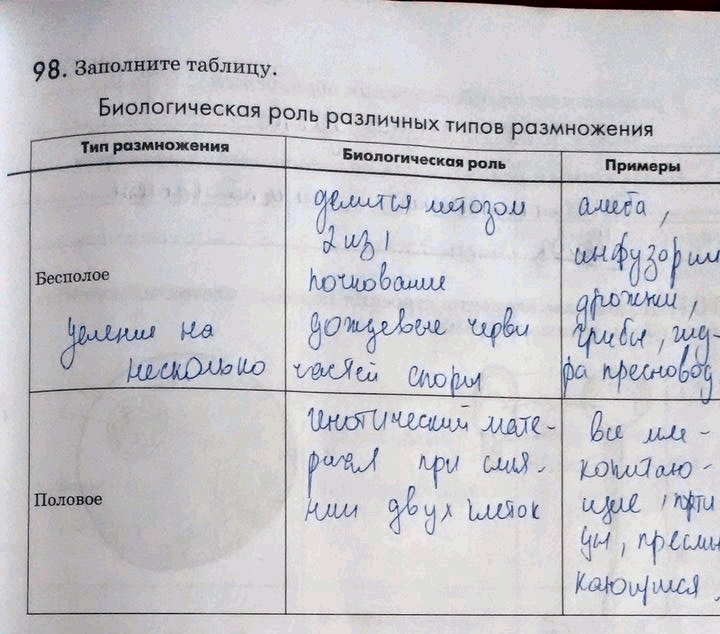 98. Заполните таблицу.
Биологическая роль различных типов размножения
Тип размножения
Биологическая роль
Примеры
Бесполое
деление на
несколько
делится митозом
2 из 1
почкование
дождевые черви
частей споры
амеба,
инфузории
дрожжи,
грибы, гид-
ра пресновод
Половое
генотический мате-
риал при слия-
нии двух клеток
все мле-
копитаю-
щие, пти
цы, пресмы
кающиеся,